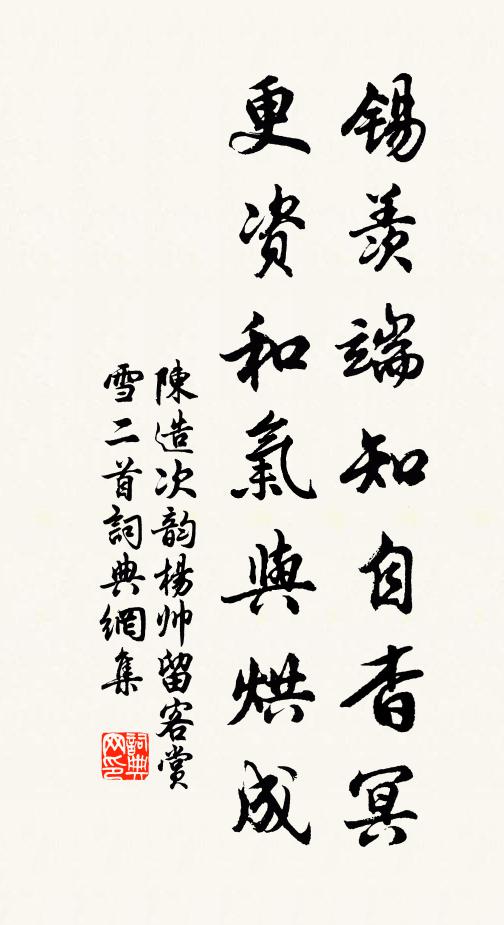 錫羨端知自杳冥
更资和氣與烘成
陳造次韵楊帅留客賞
雪二首詞典網集
詞典
网印